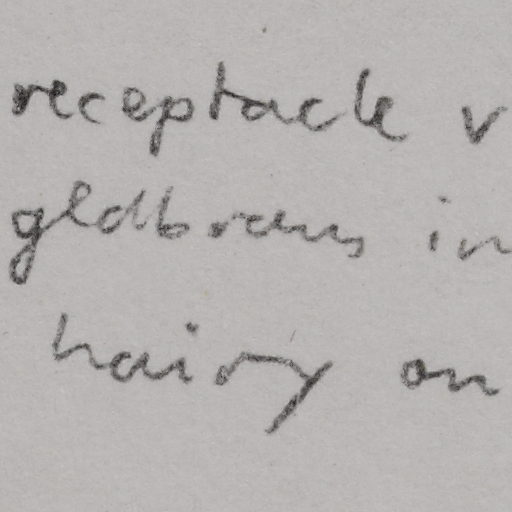 receptacle v
glabrous in
hairy on